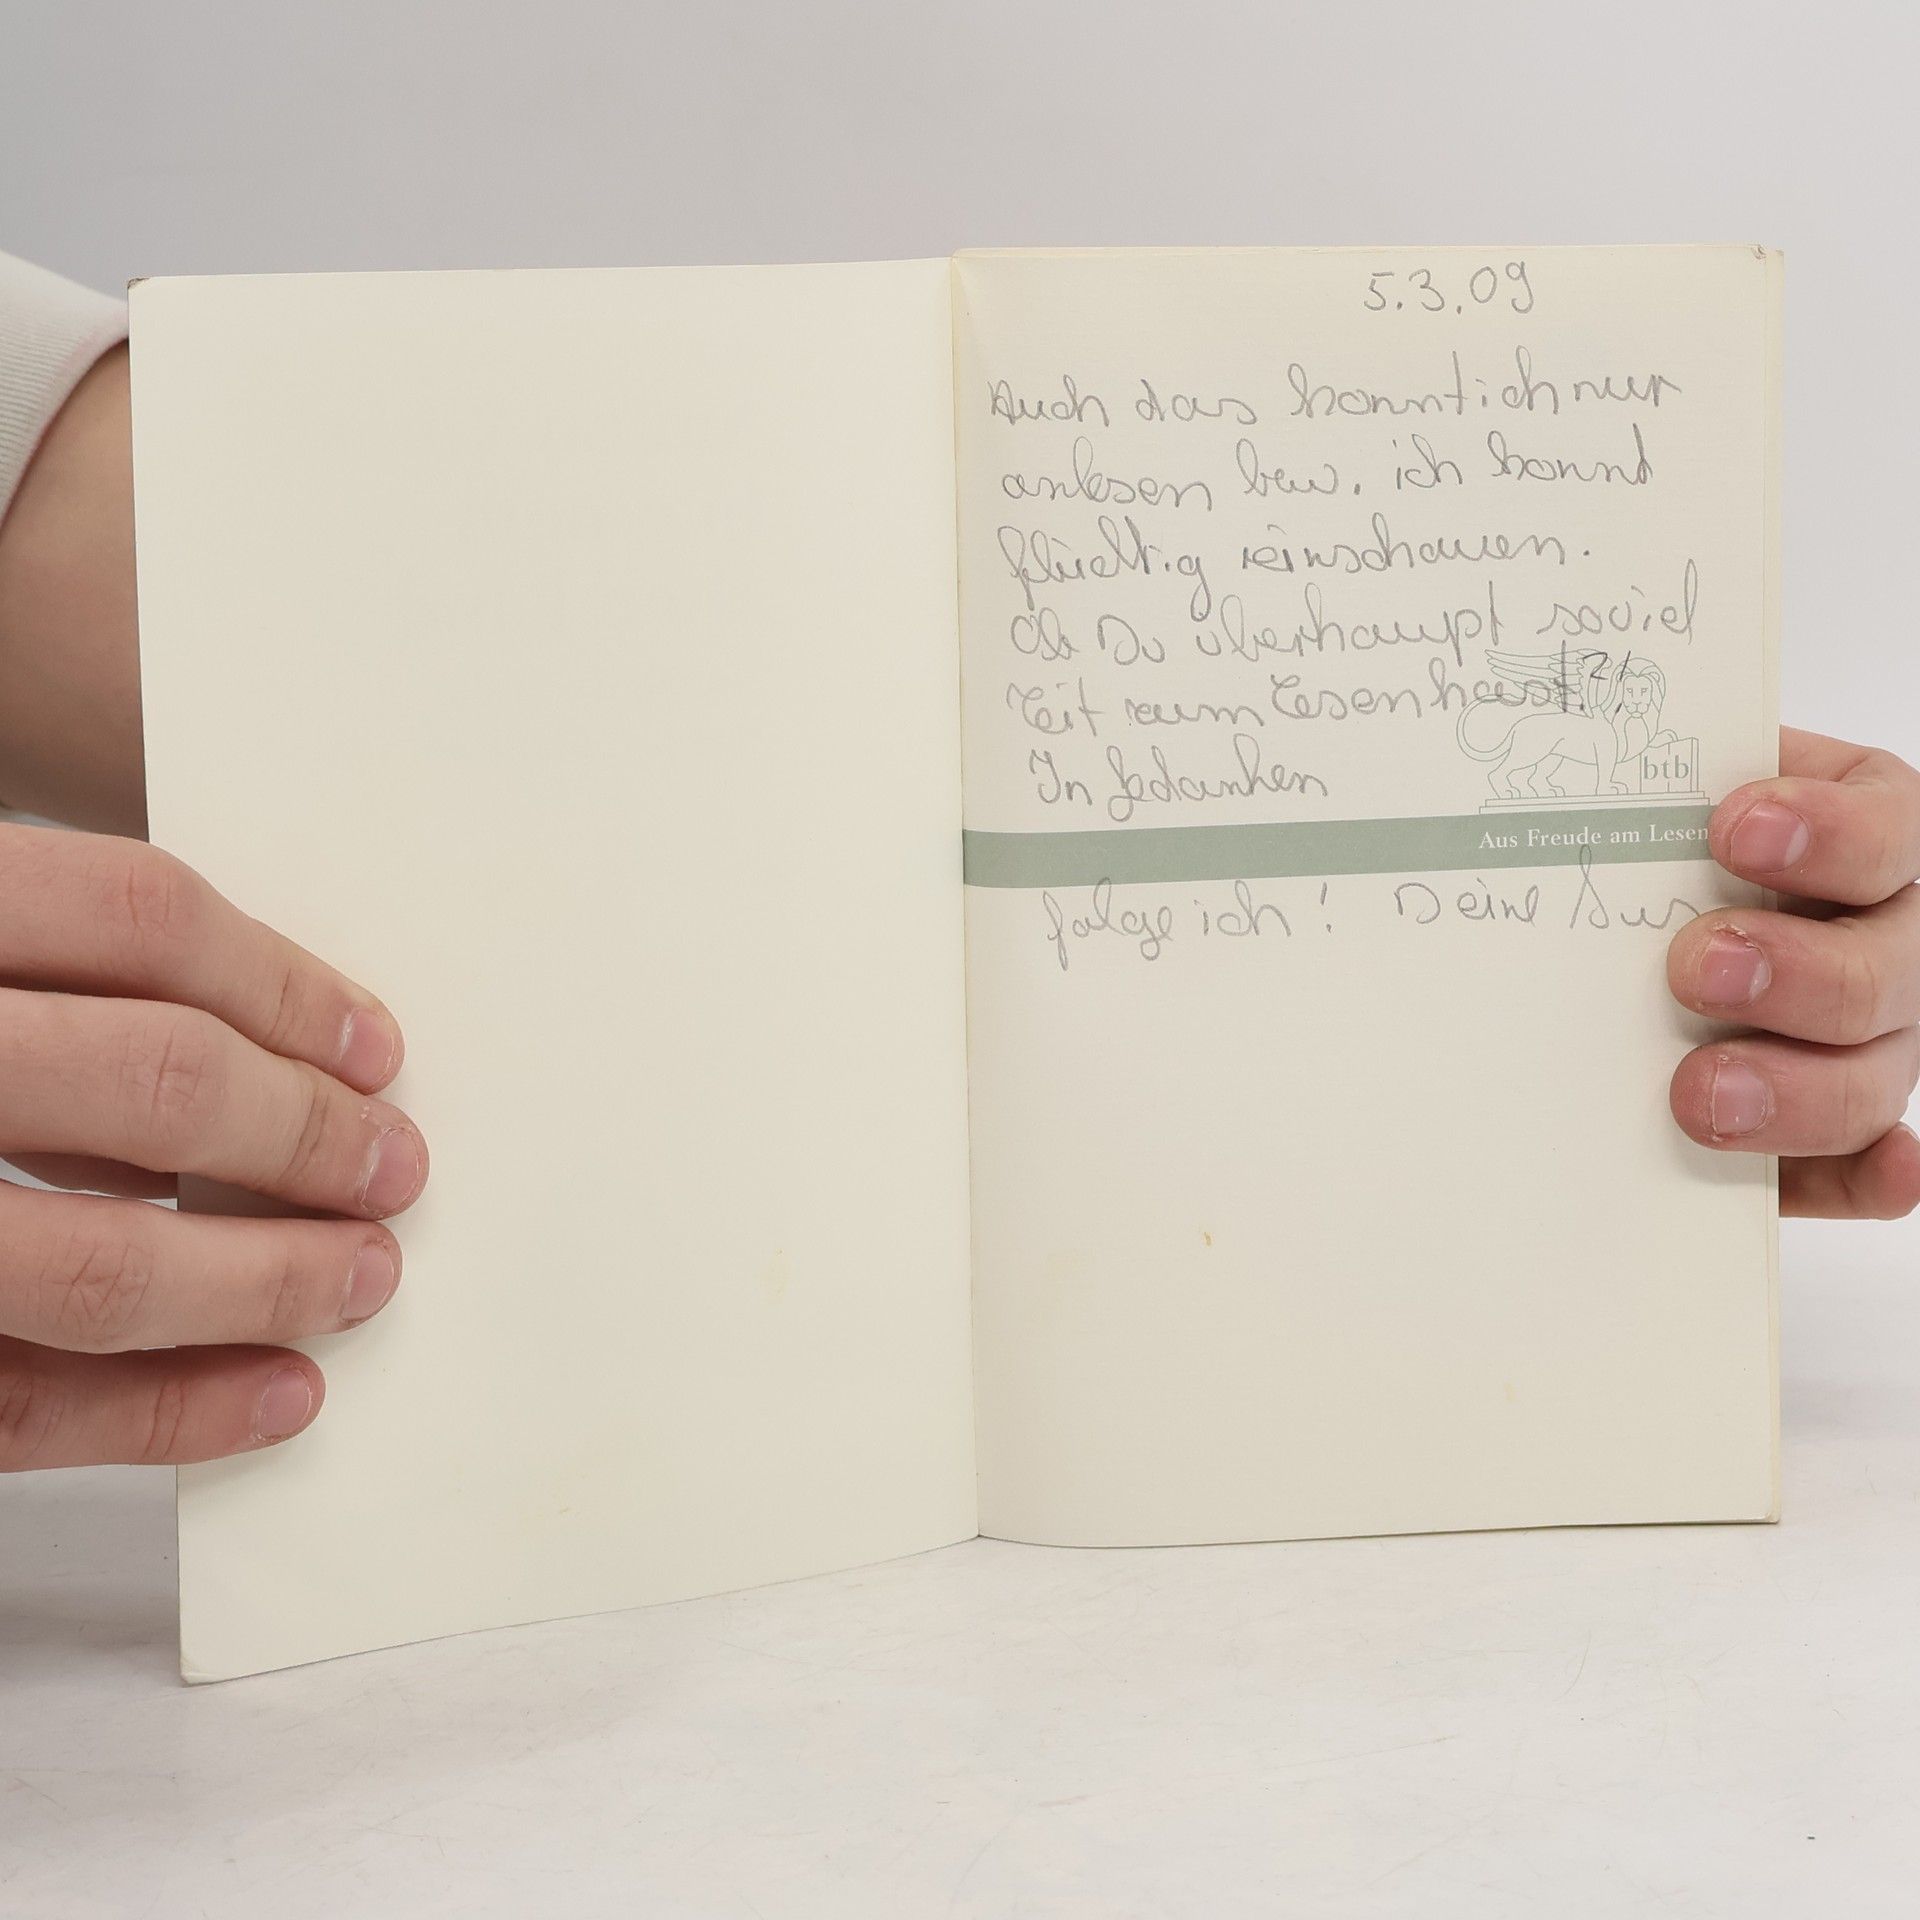 5.3.09
Auch das konnt ich nur
anlesen bzw. ich konnt
flüchtig reinschauen.
Ob Du überhaupt soviel
Zeit zum Lesen hast?!
btb
In Gedanken
Aus Freude am Lesen
folge ich! Deine Sus